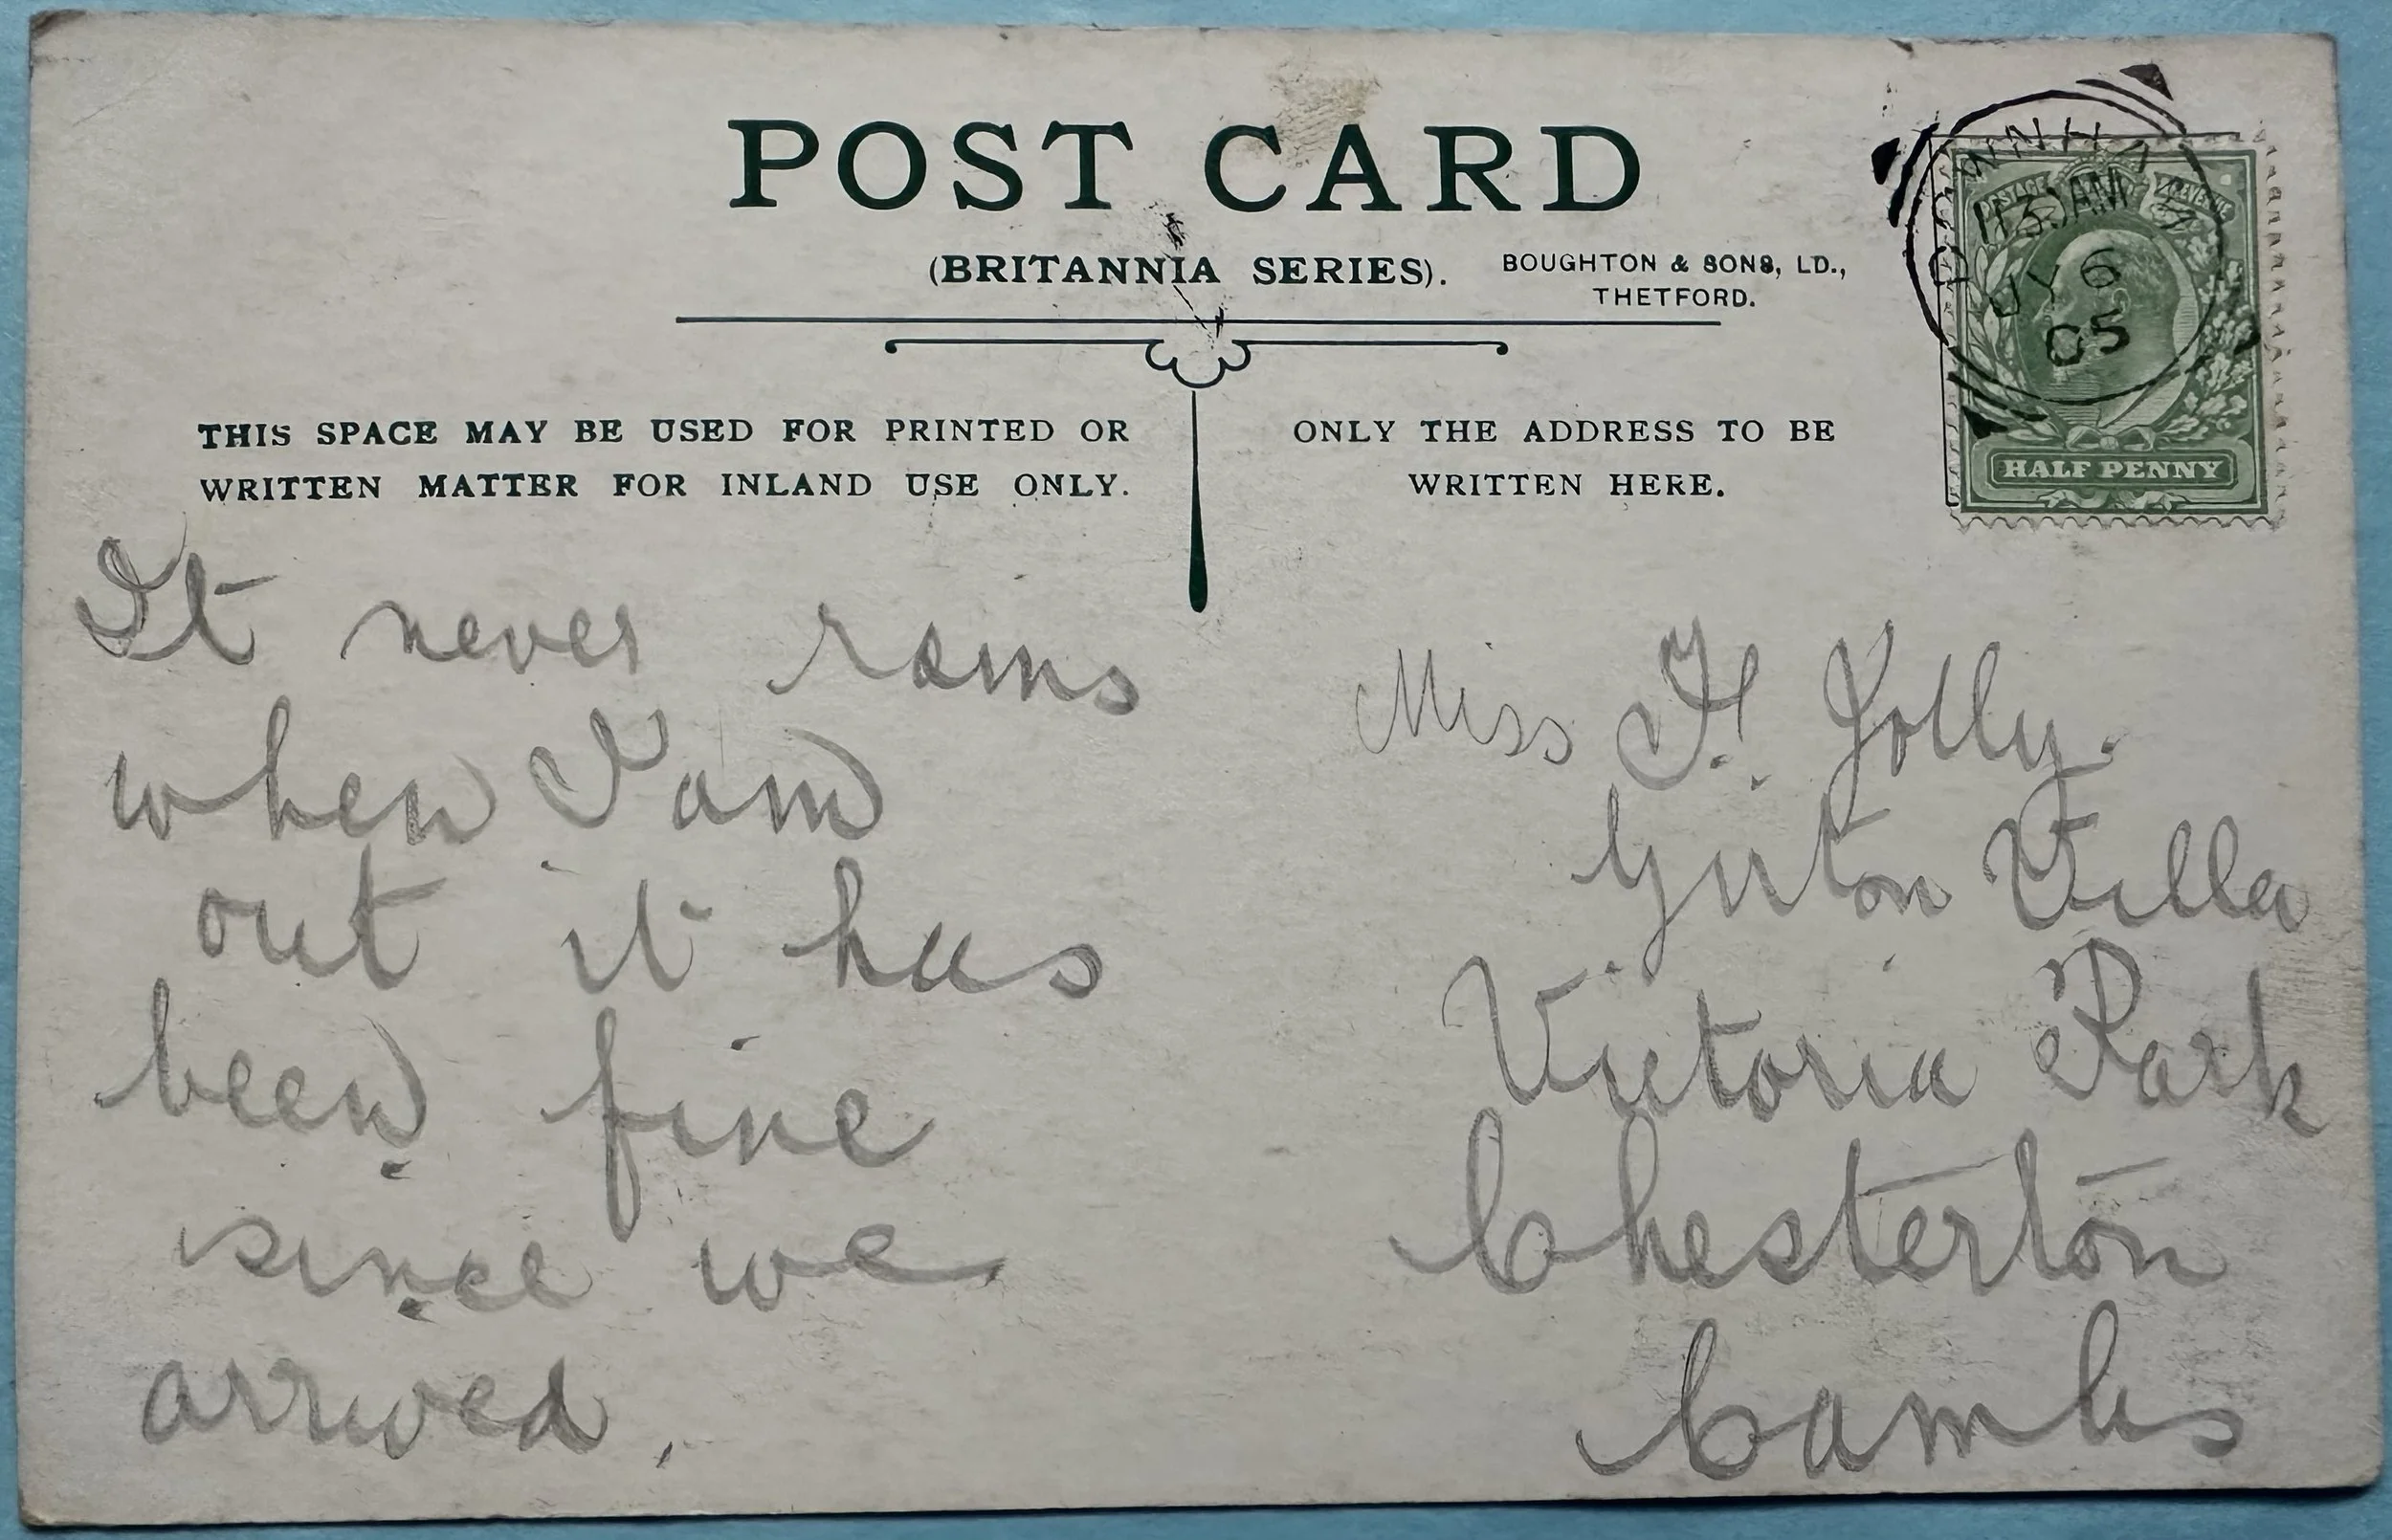 POST CARD
(BRITANNIA SERIES).
BOUGHTON & SONS, LD.,
THETFORD.
11 30 AM
JY 6
05
POSTAGE REVENUE
HALF PENNY
THIS SPACE MAY BE USED FOR PRINTED OR
WRITTEN MATTER FOR INLAND USE ONLY.
ONLY THE ADDRESS TO BE
WRITTEN HERE.
It never rains
when I am
out it has
been fine
since we
arrived.
Miss F. Jolly.
Girton Villa
Victoria Park
Chesterton
Cambs